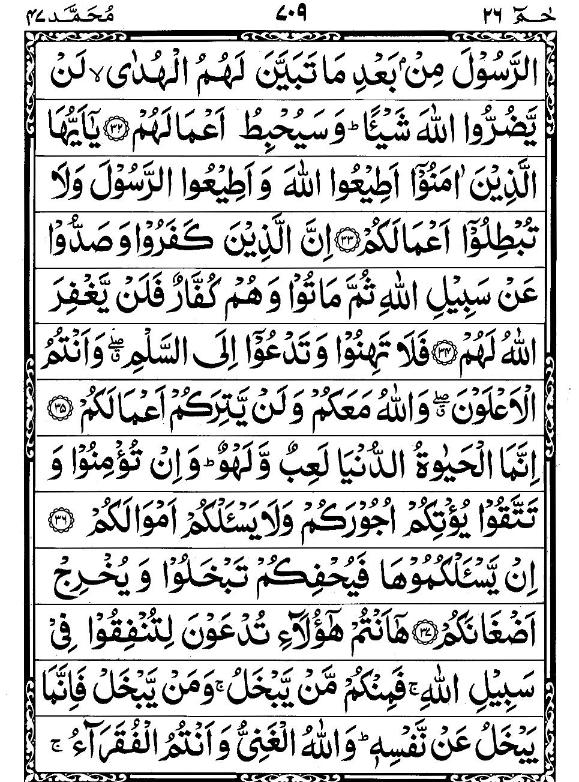 حٰمٓ ٢٦ ٧٠٩ مُحَمَّد ٤٧
الرَّسُوْلَ مِنْۢ بَعْدِ مَا تَبَيَّنَ لَهُمُ الْهُدٰى ۙ لَنْ
يَّضُرُّوا اللّٰهَ شَيْـًٔا ؕ وَسَيُحْبِطُ اَعْمَالَهُمْ ﴿٣٢﴾ يٰۤاَيُّهَا
الَّذِيْنَ اٰمَنُوْۤا اَطِيْعُوا اللّٰهَ وَاَطِيْعُوا الرَّسُوْلَ وَلَا
تُبْطِلُوْۤا اَعْمَالَكُمْ ﴿٣٣﴾ اِنَّ الَّذِيْنَ كَفَرُوْا وَصَدُّوْا
عَنْ سَبِيْلِ اللّٰهِ ثُمَّ مَاتُوْا وَهُمْ كُفَّارٌ فَلَنْ يَّغْفِرَ
اللّٰهُ لَهُمْ ﴿٣٤﴾ فَلَا تَهِنُوْا وَتَدْعُوْۤا اِلَى السَّلْمِ ۖۗ وَاَنْتُمُ
الْاَعْلَوْنَ ۖۗ وَاللّٰهُ مَعَكُمْ وَلَنْ يَّتِرَكُمْ اَعْمَالَكُمْ ﴿٣٥﴾
اِنَّمَا الْحَيٰوةُ الدُّنْيَا لَعِبٌ وَّلَهْوٌ ؕ وَاِنْ تُؤْمِنُوْا وَ
تَتَّقُوْا يُؤْتِكُمْ اُجُوْرَكُمْ وَلَا يَسْـَٔلْكُمْ اَمْوَالَكُمْ ﴿٣٦﴾
اِنْ يَّسْـَٔلْكُمُوْهَا فَيُحْفِكُمْ تَبْخَلُوْا وَيُخْرِجْ
اَضْغَانَكُمْ ﴿٣٧﴾ هٰۤاَنْتُمْ هٰۤؤُلَآءِ تُدْعَوْنَ لِتُنْفِقُوْا فِيْ
سَبِيْلِ اللّٰهِ ۚ فَمِنْكُمْ مَّنْ يَّبْخَلُ ۚ وَمَنْ يَّبْخَلْ فَاِنَّمَا
يَبْخَلُ عَنْ نَّفْسِهٖ ؕ وَاللّٰهُ الْغَنِيُّ وَاَنْتُمُ الْفُقَرَآءُ ۚ